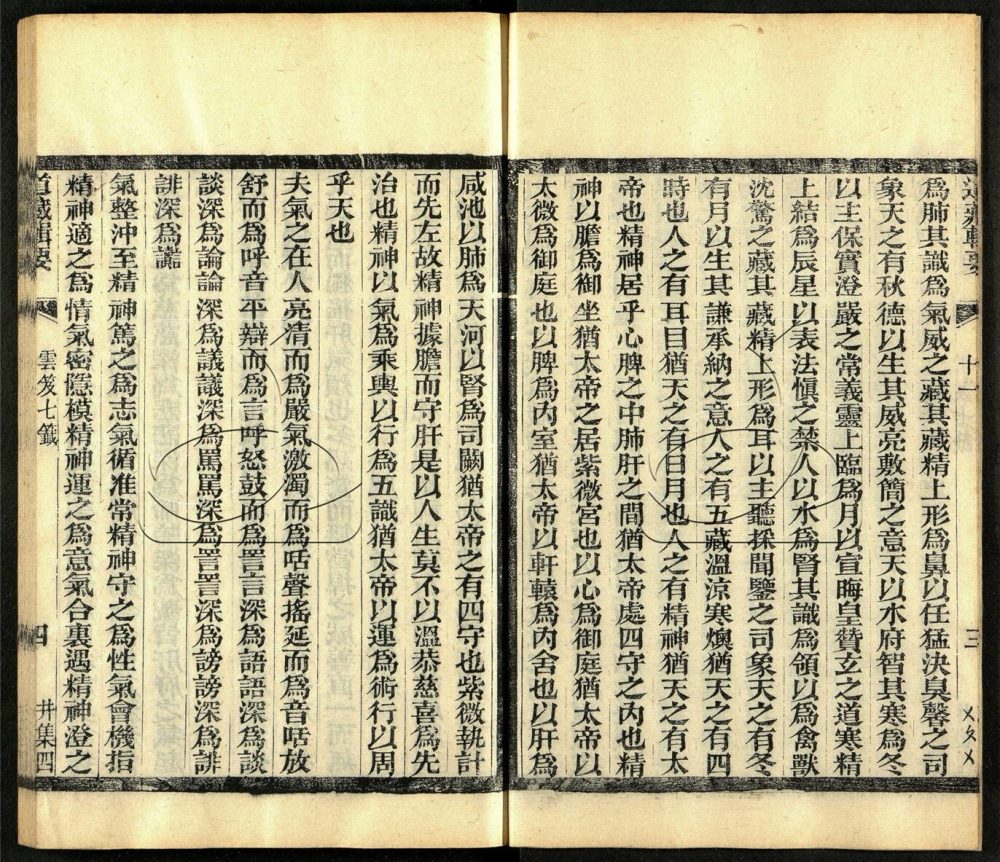 爲肺其識爲氣威之藏其藏精上形爲鼻以任猛決臭馨之司
象天之有秋德以生其威亮敷簡之意天以水府智其寒爲冬
以主保實澄嚴之常義靈上臨爲月以宣晦皇贊玄之道寒精
上結爲辰星以表法愼之禁人以水爲腎其識爲領以爲禽獸
沈驚之藏其藏精上形爲耳以主聽採聞鑒之司象天之有冬
有月以生其謙承納之意人之有五藏溫涼寒燠猶天之有四
時也人之有耳目猶天之有日月也人之有精神猶天之有太
帝也精神居乎心脾之中肺肝之間猶太帝處四守之內也精
神以膽爲御坐猶太帝之居紫微宮也以心爲御庭猶太帝以
太微爲御庭也以脾爲內室猶太帝以軒轅爲內舍也以肝爲
咸池以肺爲天河以腎爲司闕猶太帝之有四守也紫微執計
而先左故精神據膽而守肝是以人生莫不以溫恭慈喜爲先
治也精神以氣爲乘輿以行爲五識猶太帝以運爲術行以周
乎天也
夫氣之在人亮清而爲嚴氣激濁而爲咶聲搖延而爲音咶放
舒而爲呼音平辯而爲言呼怒鼓而爲詈言深爲語語深爲談
談深爲論論深爲議議深爲罵罵深爲詈詈深爲謗謗深爲誹
誹深爲讟
氣整沖至精神篤之爲志氣循准常精神守之爲性氣會機指
精神適之爲情氣密隱模精神運之爲意氣合裏遇精神澄之
道藏輯要 雲笈七籤 四 井集四